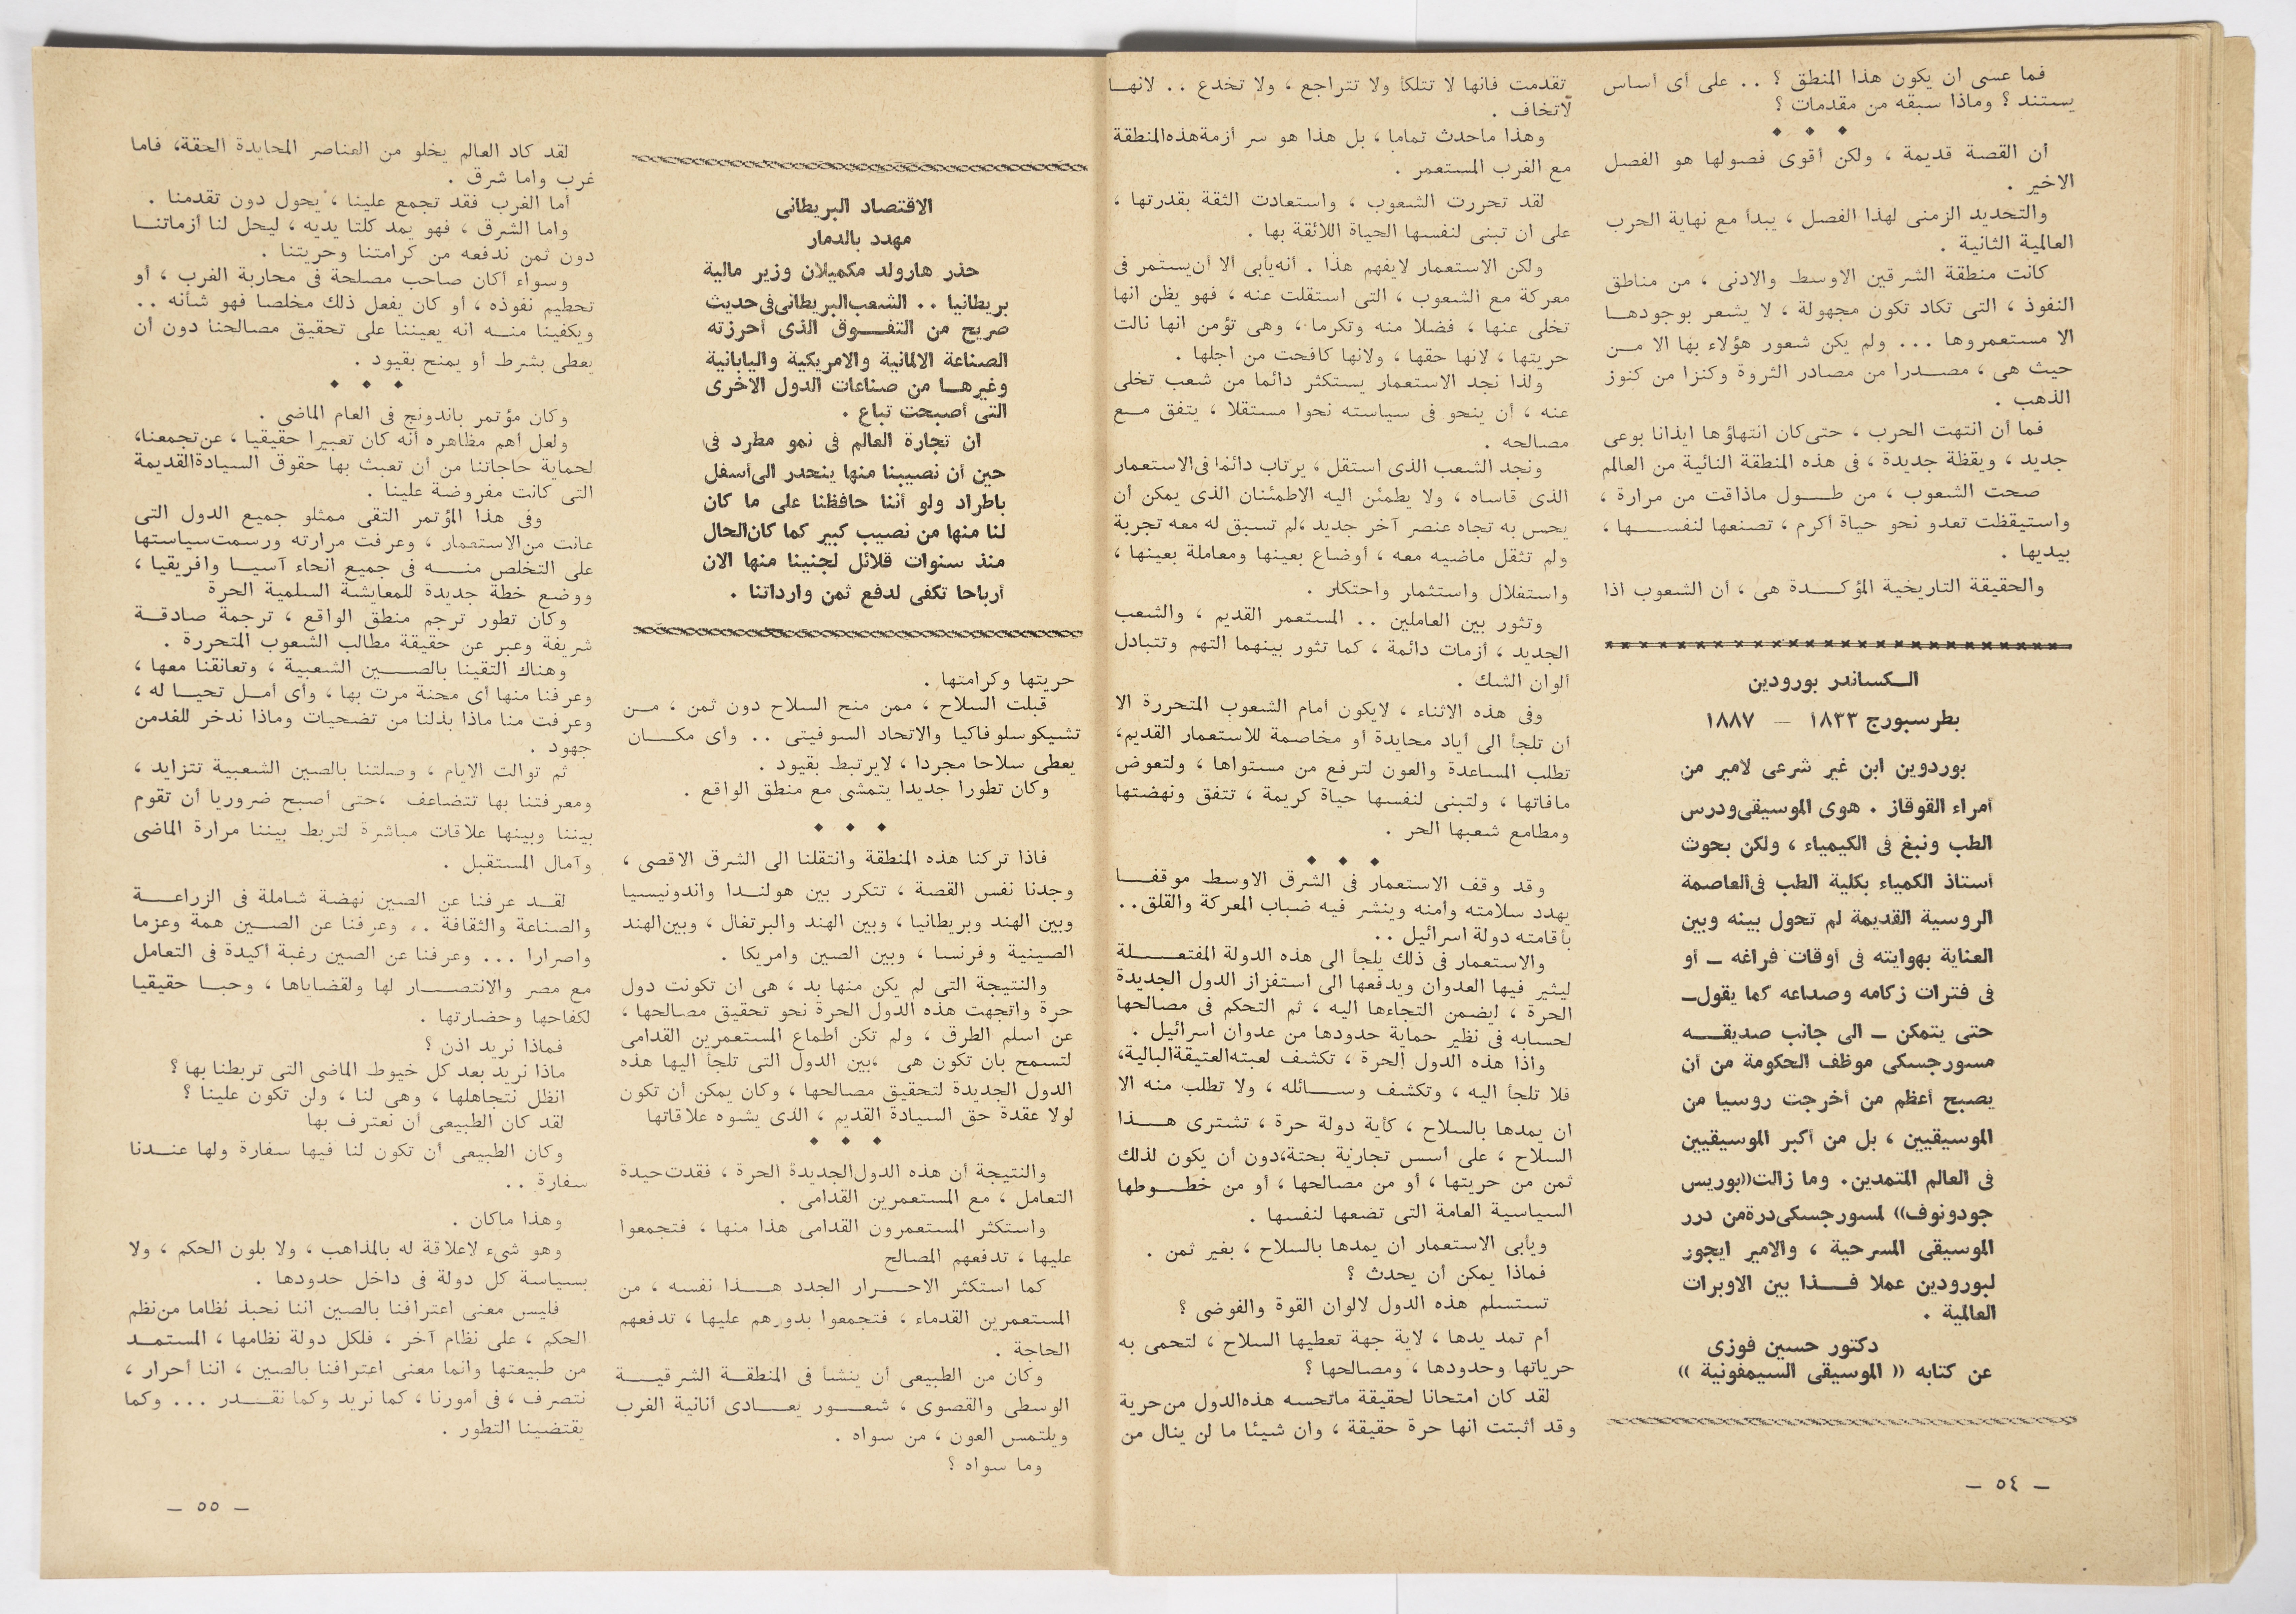 فما عسى ان يكون هذا المنطق ؟ .. على أى أساس
يستند ؟ وماذا سبقه من مقدمات ؟
أن القصة قديمة ، ولكن أقوى فصولها هو الفصل
الاخير .
والتحديد الزمنى لهذا الفصل ، يبدأ مع نهاية الحرب
العالمية الثانية .
كانت منطقة الشرقين الاوسط والادنى ، من مناطق
النفوذ ، التى تكاد تكون مجهولة ، لا يشعر بوجودهـا
الا مستعمروها ... ولم يكن شعور هؤلاء بها الا مـن
حيث هى ، مصـدرا من مصادر الثروة وكنزا من كنوز
الذهب .
فما أن انتهت الحرب ، حتى كان انتهاؤها ايذانا بوعى
جديد ، ويقظة جديدة ، فى هذه المنطقة النائية من العالم
صحت الشعوب ، من طـول ماذاقت من مرارة ،
واستيقظت تعدو نحو حياة أكرم ، تصنعها لنفسـها ،
بيديها .
والحقيقة التاريخية المؤكـدة هى ، أن الشعوب اذا
الـكساندر بورودين
بطرسبورج ١٨٣٣ — ١٨٨٧
بوردوين ابن غير شرعى لامير من
أمراء القوقاز . هوى الموسيقى ودرس
الطب ونبغ فى الكيمياء ، ولكن بحوث
أستاذ الكمياء بكلية الطب فى العاصمة
الروسية القديمة لم تحول بينه وبين
العناية بهوايته فى أوقات فراغه ـ أو
فى فترات زكامه وصداعه كما يقولـ
حتى يتمكن ـ الى جانب صديقـه
مسورجسكى موظف الحكومة من أن
يصبح أعظم من أخرجت روسيا من
الموسيقيين ، بل من أكبر الموسيقيين
فى العالم المتمدين. وما زالت((بوريس
جودونوف)) لمسورجسكى درة من درر
الموسيقى المسرحية ، والامير ايجور
لبورودين عملا فـذا بين الاوبرات
العالمية .
دكتور حسين فوزى
عن كتابه (( الموسيقى السيمفونية ))
— ٥٤ —
تقدمت فانها لا تتلكأ ولا تتراجع ، ولا تخدع .. لانهـا
لاتخاف .
وهذا ماحدث تماما ، بل هذا هو سر أزمة هذه المنطقة
مع الغرب المستعمر .
لقد تحررت الشعوب ، واستعادت الثقة بقدرتها ،
على ان تبنى لنفسها الحياة اللائقة بها .
ولكن الاستعمار لايفهم هذا . أنه يأبى الا أن يستمر فى
معركة مع الشعوب ، التى استقلت عنه ، فهو يظن انها
تخلى عنها ، فضلا منه وتكرما ، وهى تؤمن انها نالت
حريتها ، لانها حقها ، ولانها كافحت من اجلها .
ولذا نجد الاستعمار يستكثر دائما من شعب تخلى
عنه ، أن ينحو فى سياسته نحوا مستقلا ، يتفق مـع
مصالحه .
ونجد الشعب الذى استقل ، يرتاب دائما فى الاستعمار
الذى قاساه ، ولا يطمئن اليه الاطمئنان الذى يمكن أن
يحس به تجاه عنصر آخر جديد ، لم تسبق له معه تجربة
ولم تثقل ماضيه معه ، أوضاع بعينها ومعاملة بعينها ،
واستغلال واستثمار واحتكار .
وتثور بين العاملين .. المستعمر القديم ، والشعب
الجديد ، أزمات دائمة ، كما تثور بينهما التهم وتتبادل
ألوان الشك .
وفى هذه الاثناء ، لايكون أمام الشعوب المتحررة الا
أن تلجأ الى أياد محايدة أو مخاصمة للاستعمار القديم،
تطلب المساعدة والعون لترفع من مستواها ، ولتعوض
مافاتها ، ولتبنى لنفسها حياة كريمة ، تتفق ونهضتها
ومطامع شعبها الحر .
وقد وقف الاستعمار فى الشرق الاوسط موقفـا
يهدد سلامته وأمنه وينشر فيه ضباب المعركة والقلق..
بأقامته دولة اسرائيل ..
والاستعمار فى ذلك يلجأ الى هذه الدولة المفتعـلة
ليثير فيها العدوان ويدفعها الى استفزاز الدول الجديدة
الحرة ، ليضمن التجاءها اليه ، ثم التحكم فى مصالحها
لحسابه فى نظير حماية حدودها من عدوان اسرائيل .
واذا هذه الدول الحرة ، تكشف لعبته العتيقة البالية،
فلا تلجأ اليه ، وتكشف وسـائله ، ولا تطلب منه الا
ان يمدها بالسلاح ، كأية دولة حرة ، تشترى هـذا
السلاح ، على أسس تجارية بحتة،دون أن يكون لذلك
ثمن من حريتها ، أو من مصالحها ، أو من خطـوطها
السياسية العامة التى تضعها لنفسها .
ويأبى الاستعمار ان يمدها بالسلاح ، بغير ثمن .
فماذا يمكن أن يحدث ؟
تستسلم هذه الدول لالوان القوة والفوضى ؟
أم تمد يدها ، لاية جهة تعطيها السلاح ، لتحمى به
حرياتها وحدودها ، ومصالحها ؟
لقد كان امتحانا لحقيقة ماتحسه هذه الدول من حرية
وقد أثبتت انها حرة حقيقة ، وان شيئا ما لن ينال من
الاقتصاد البريطانى
مهدد بالدمار
حذر هارولد مكميلان وزير مالية
بريطانيا .. الشعب البريطانى فى حديث
صريح من التفـوق الذى أحرزته
الصناعة الالمانية والامريكية واليابانية
وغيرهـا من صناعات الدول الاخرى
التى أصبحت تباع .
ان تجارة العالم فى نمو مطرد فى
حين أن نصيبنا منها ينحدر الى أسفل
باطراد ولو أننا حافظنا على ما كان
لنا منها من نصيب كبير كما كان الحال
منذ سنوات قلائل لجنينا منها الان
أرباحا تكفى لدفع ثمن وارداتنا .
حريتها وكرامتها .
قبلت السلاح ، ممن منح السلاح دون ثمن ، مـن
تشيكوسلوفاكيا والاتحاد السوفيتى .. وأى مكـان
يعطى سلاحا مجردا ، لايرتبط بقيود .
وكان تطورا جديدا يتمشى مع منطق الواقع .
فاذا تركنا هذه المنطقة وانتقلنا الى الشرق الاقصى ،
وجدنا نفس القصة ، تتكرر بين هولنـدا واندونيسيا
وبين الهند وبريطانيا ، وبين الهند والبرتغال ، وبين الهند
الصينية وفرنسا ، وبين الصين وامريكا .
والنتيجة التى لم يكن منها بد ، هى ان تكونت دول
حرة واتجهت هذه الدول الحرة نحو تحقيق مصالحها ،
عن اسلم الطرق ، ولم تكن أطماع المستعمرين القدامى
لتسمح بان تكون هى ،بين الدول التى تلجأ اليها هذه
الدول الجديدة لتحقيق مصالحها ، وكان يمكن أن تكون
لولا عقدة حق السيادة القديم ، الذى يشوه علاقاتها
والنتيجة أن هذه الدول الجديدة الحرة ، فقدت حيدة
التعامل ، مع المستعمرين القدامى .
واستكثر المستعمرون القدامى هذا منها ، فتجمعوا
عليها ، تدفعهم المصالح
كما استكثر الاحـرار الجدد هـذا نفسه ، من
المستعمرين القدماء ، فتجمعوا بدورهم عليها ، تدفعهم
الحاجة .
وكان من الطبيعى أن ينشأ فى المنطقـة الشرقيـة
الوسطى والقصوى ، شعـور يعـادى أنانية الغرب
ويلتمس العون ، من سواه .
وما سواه ؟
لقد كاد العالم يخلو من العناصر المحايدة الحقة، فاما
غرب واما شرق .
أما الغرب فقد تجمع علينا ، يحول دون تقدمنا .
واما الشرق ، فهو يمد كلتا يديه ، ليحل لنا أزماتنـا
دون ثمن ندفعه من كرامتنا وحريتنا .
وسواء أكان صاحب مصلحة فى محاربة الغرب ، أو
تحطيم نفوذه ، أو كان يفعل ذلك مخلصا فهو شأنه ..
ويكفينا منـه انه يعيننا على تحقيق مصالحنا دون أن
يعطى بشرط أو يمنح بقيود .
وكان مؤتمر باندونج فى العام الماضى .
ولعل أهم مظاهره أنه كان تعبيرا حقيقيا ، عن تجمعنا،
لحماية حاجاتنا من أن تعبث بها حقوق السيادة القديمة
التى كانت مفروضة علينا .
وفى هذا المؤتمر التقى ممثلو جميع الدول التى
عانت من الاستعمار ، وعرفت مرارته ورسمت سياستها
على التخلص منـه فى جميع انحاء آسيـا وافريقيا ،
ووضع خطة جديدة للمعايشة السلمية الحرة
وكان تطور ترجم منطق الواقع ، ترجمة صادقـة
شريفة وعبر عن حقيقة مطالب الشعوب المتحررة .
وهناك التقينا بالصـين الشعبية ، وتعانقنا معها ،
وعرفنا منها أى محنة مرت بها ، وأى أمـل تحيـا له ،
وعرفت منا ماذا بذلنا من تضحيات وماذا ندخر للغد من
جهود .
ثم توالت الايام ، وصلتنا بالصين الشعبية تتزايد ،
ومعرفتنا بها تتضاعف ،حتى أصبح ضروريا أن تقوم
بيننا وبينها علاقات مباشرة لتربط بيننا مرارة الماضى
وآمال المستقبل .
لقـد عرفنا عن الصين نهضة شاملة فى الزراعـة
والصناعة والثقافة .. وعرفنا عن الصـين همة وعزما
واصرارا ... وعرفنا عن الصين رغبة أكيدة فى التعامل
مع مصر والانتصـار لها ولقضاياها ، وحبـا حقيقيا
لكفاحها وحضارتها .
فماذا نريد اذن ؟
ماذا نريد بعد كل خيوط الماضى التى تربطنا بها ؟
انظل نتجاهلها ، وهى لنا ، ولن تكون علينا ؟
لقد كان الطبيعى أن نعترف بها
وكان الطبيعى أن تكون لنا فيها سفارة ولها عنـدنا
سفارة ..
وهذا ماكان .
وهو شىء لاعلاقة له بالمذاهب ، ولا بلون الحكم ، ولا
بسياسة كل دولة فى داخل حدودها .
فليس معنى اعترافنا بالصين اننا نحبذ نظاما من نظم
الحكم ، على نظام آخر ، فلكل دولة نظامها ، المستمـد
من طبيعتها وانما معنى اعترافنا بالصين ، اننا أحرار ،
نتصرف ، فى أمورنا ، كما نريد وكما نقـدر ... وكما
يقتضينا التطور .
— ٥٥ —